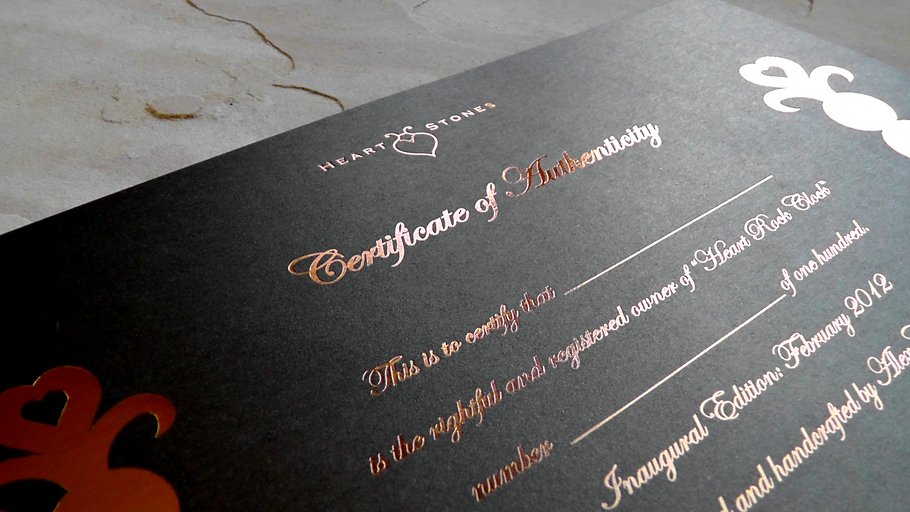 HEART STONES
Certificate of Authenticity
This is to certify that
is the rightful and registered owner of "Heart Rock Clock"
number of one hundred.
Inaugural Edition: February 2012
and handcrafted by